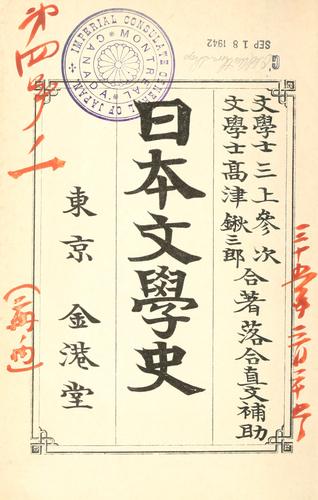 文學士三上參次
文學士髙津鍬三郎
合著落合直文補助
日本文學史
東京 金港堂
IMPERIAL CONSULATE GENERAL OF JAPAN
MONTREAL
CANADA
SEP 18 1942
第四号ノ一